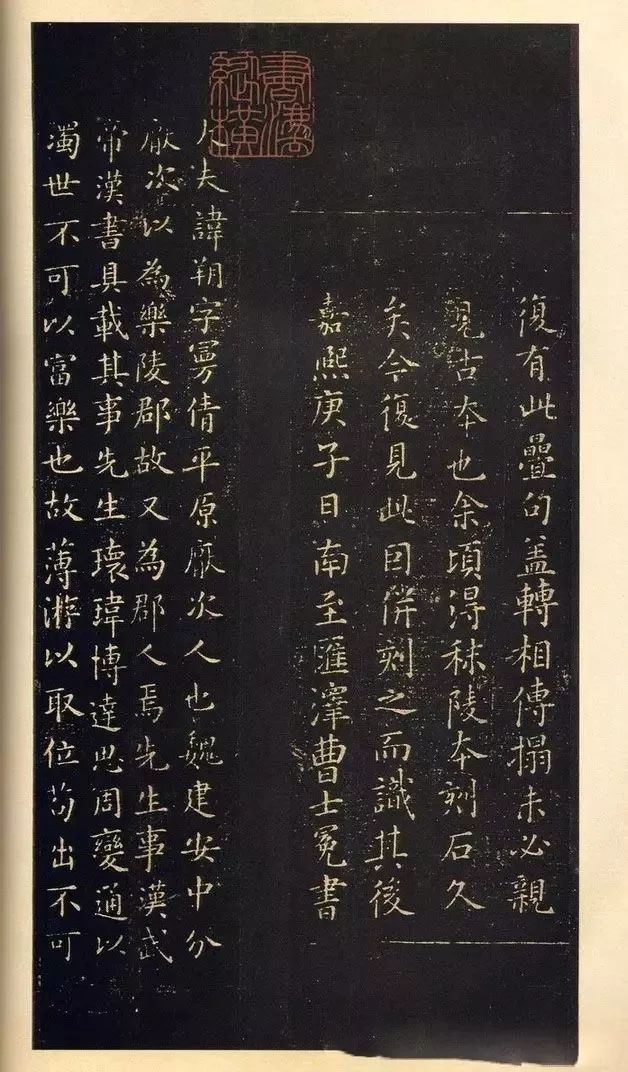 復有此疊句蓋轉相傳搨未必親
見古本也余頃得秣陵本刻石久
矣今復見此因併刻之而識其後
嘉熙庚子日南至匯澤曹士冕書
大夫諱朔字曼倩平原厭次人也魏建安中分
厭次以為樂陵郡故又為郡人焉先生事漢武
帝漢書具載其事先生瓌瑋博達思周變通以
濁世不可以富樂也故薄游以取位苟出不可